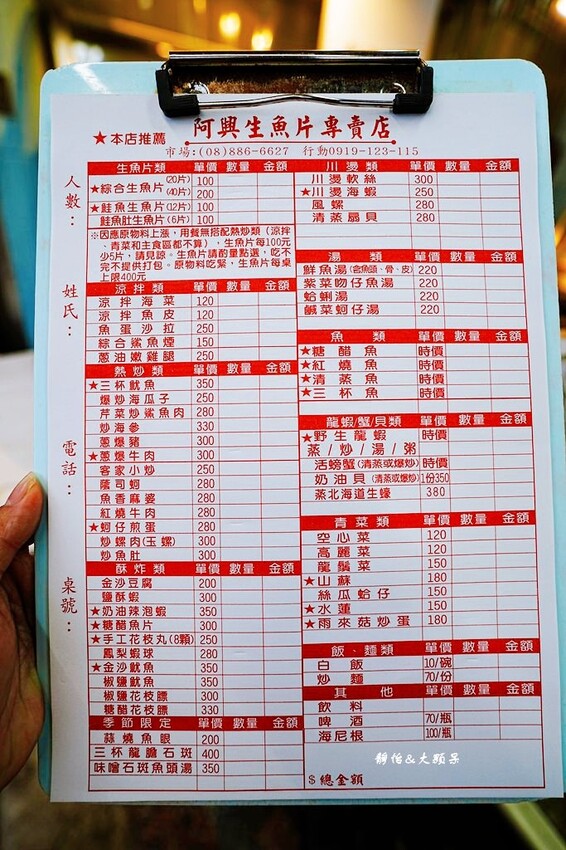 ★本店推薦 阿興生魚片專賣店
市場:(08)886-6627 行動0919-123-115
人數：
姓氏：
電話：
桌號：
生魚片類 單價 數量 金額
★綜合生魚片(20片) 100
(40片) 200
★鮭魚生魚片(12片) 100
鮭魚肚生魚片(6片) 100
※因應原物料上漲，用餐無搭配熱炒類（涼拌
、青菜和主食區都不算），生魚片每100元
少5片，請見諒。生魚片請酌量點選，吃不
完不提供打包。原物料吃緊，生魚片每桌
上限400元
涼拌類 單價 數量 金額
涼拌海菜 120
涼拌魚皮 120
魚蛋沙拉 210
綜合鯊魚煙 150
蔥油嫩雞腿 250
熱炒類 單價 數量 金額
★三杯魷魚 350
爆炒海瓜子 250
芹菜炒鯊魚肉 280
炒海參 330
蔥爆豬 300
★蔥爆牛肉 300
客家小炒 250
蔭司蚵 280
魚香麻婆 280
紅燒牛肉 280
★蚵仔煎蛋 280
炒螺肉(玉螺) 300
炒魚肚 300
酥炸類 單價 數量 金額
金沙豆腐 200
鹽酥蝦 300
★奶油辣泡蝦 350
★糖醋魚片 300
★手工花枝丸(8顆) 250
鳳梨蝦球 280
★金沙魷魚 350
椒鹽魷魚 350
椒鹽花枝膘 300
糖醋花枝膘 330
季節限定 單價 數量 金額
蒜燒魚眼 200
三杯龍膽石斑 400
味噌石斑魚頭湯 350
川燙類 單價 數量 金額
川燙軟絲 300
★川燙海蝦 250
風螺 280
清蒸扇貝 280
湯類 單價 數量 金額
鮮魚湯(含魚頭、骨、皮) 220
紫菜吻仔魚湯 220
蛤蜊湯 220
鹹菜蚵仔湯 220
魚類 單價 數量 金額
★糖醋魚 時價
★紅燒魚 時價
★清蒸魚 時價
★三杯魚 時價
龍蝦/蟹/貝類 單價 數量 金額
★野生龍蝦 時價
蒸/炒/湯/粥
活螃蟹(清蒸或爆炒) 時價
奶油貝(清蒸或爆炒) 1份350
蒸北海道生蠔 380
青菜類 單價 數量 金額
空心菜 120
高麗菜 120
龍鬚菜 150
★山蘇 180
絲瓜蛤仔 180
★水蓮 150
★雨來菇炒蛋 180
飯、麵類 單價 數量 金額
白飯 10/碗
炒麵 70/份
其他 單價 數量 金額
飲料
啤酒 70/瓶
海尼根 100/瓶
靜怡&大顆呆
$總金額